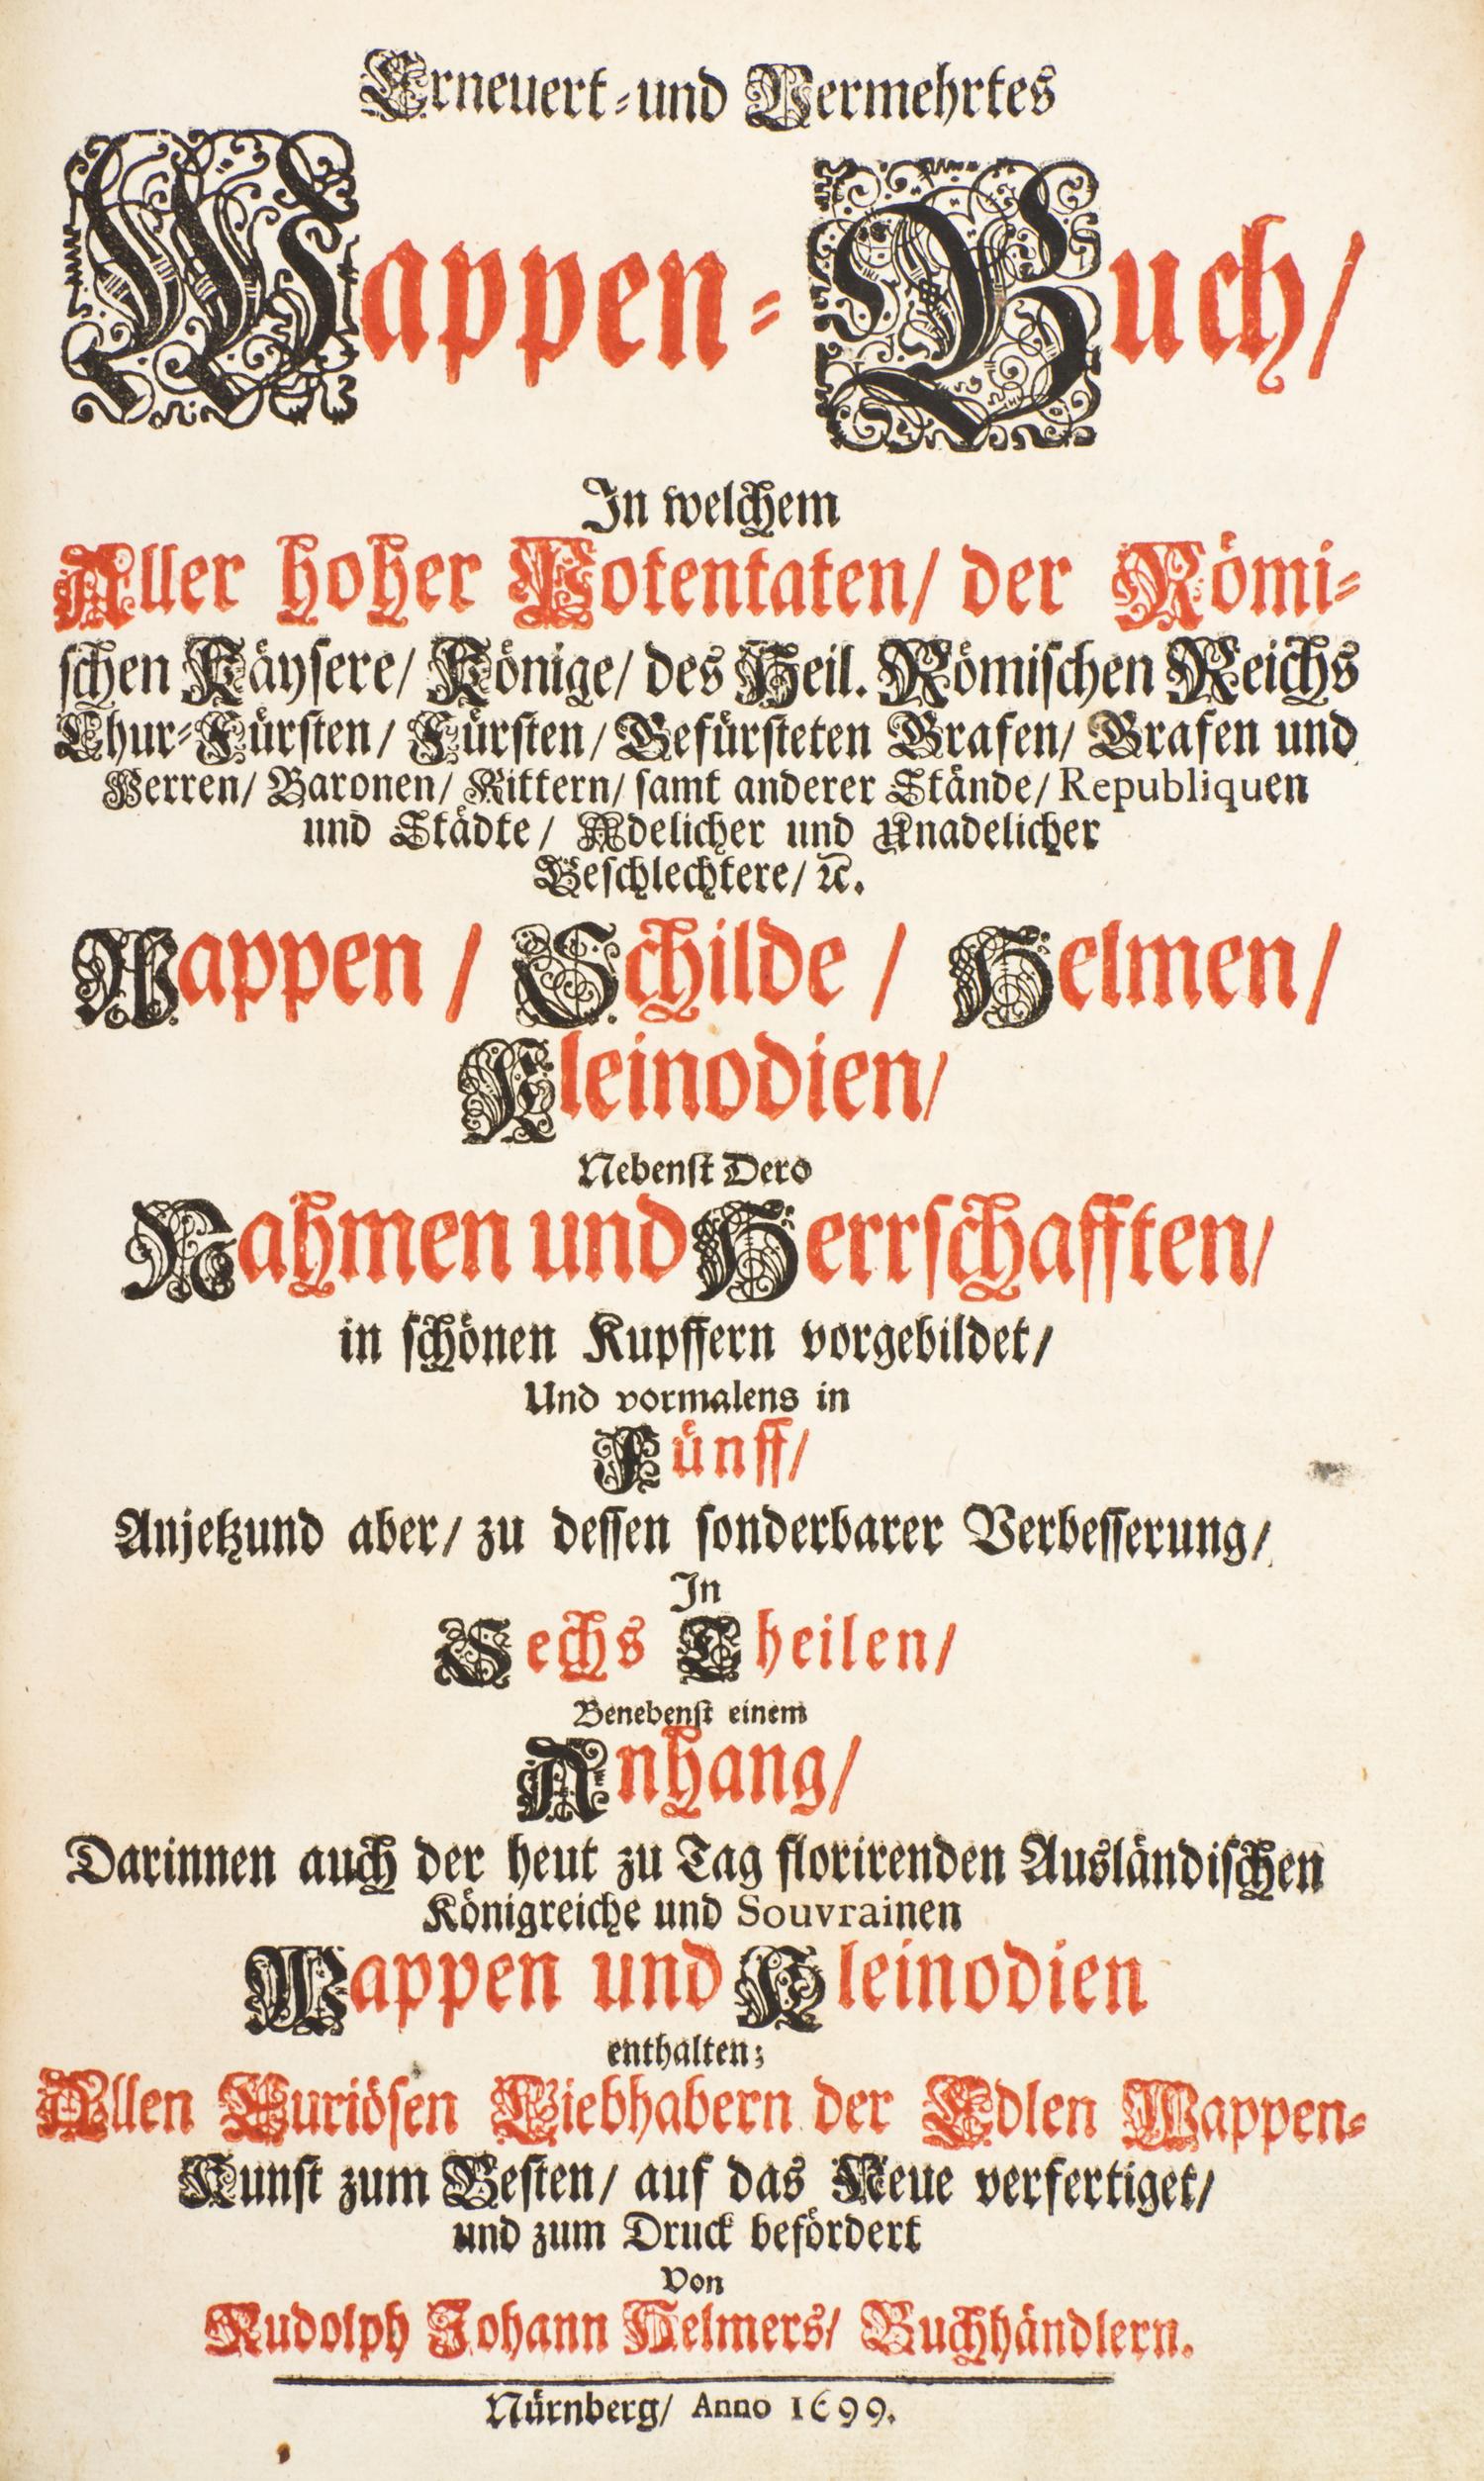 Erneuert-und Vermehrtes
Wappen-Buch/
In welchem
Aller hoher Potentaten/ der Römi-
schen Käysere/ Könige/ des Heil. Römischen Reichs
Chur-Fürsten/ Fürsten/ Gefürsteten Grafen/ Grafen und
Herren/ Baronen/ Rittern/ samt anderer Stände/ Republiquen
und Städte/ Adelicher und Unadelicher
Geschlechtere/ ꝛc.
Wappen/ Schilde/ Helmen/
Kleinodien/
Nebenst Dero
Nahmen und Herrschafften/
in schönen Kupffern vorgebildet/
Und vormalens in
Fünff/
Anjetzund aber/ zu dessen sonderbarer Verbesserung/
In
Sechs Theilen/
Benebenst einem
Anhang/
Darinnen auch der heut zu Tag florirenden Ausländischen
Königreiche und Souvrainen
Wappen und Kleinodien
enthalten;
Allen Curiösen Liebhabern der Edlen Wappen-
Kunst zum Besten/ auf das Neue verfertiget/
und zum Druck befördert
Von
Rudolph Johann Helmers/ Buchhändlern.
Nürnberg/ Anno 1699.